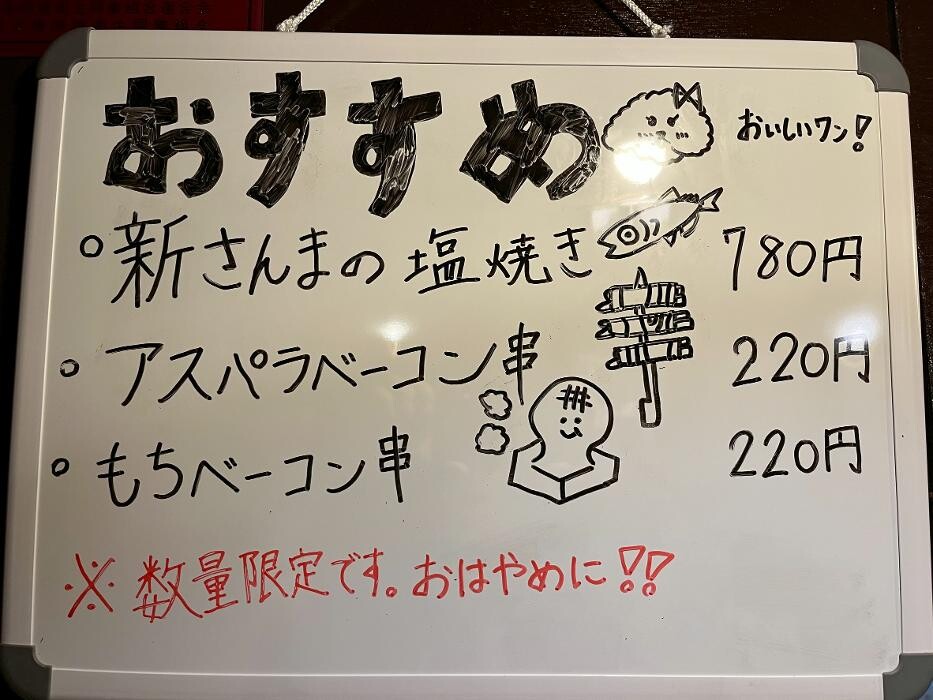 おすすめ
おいしいワン!
○新さんまの塩焼き 780円
○アスパラベーコン串 220円
○もちベーコン串 220円
※数量限定です。おはやめに!!